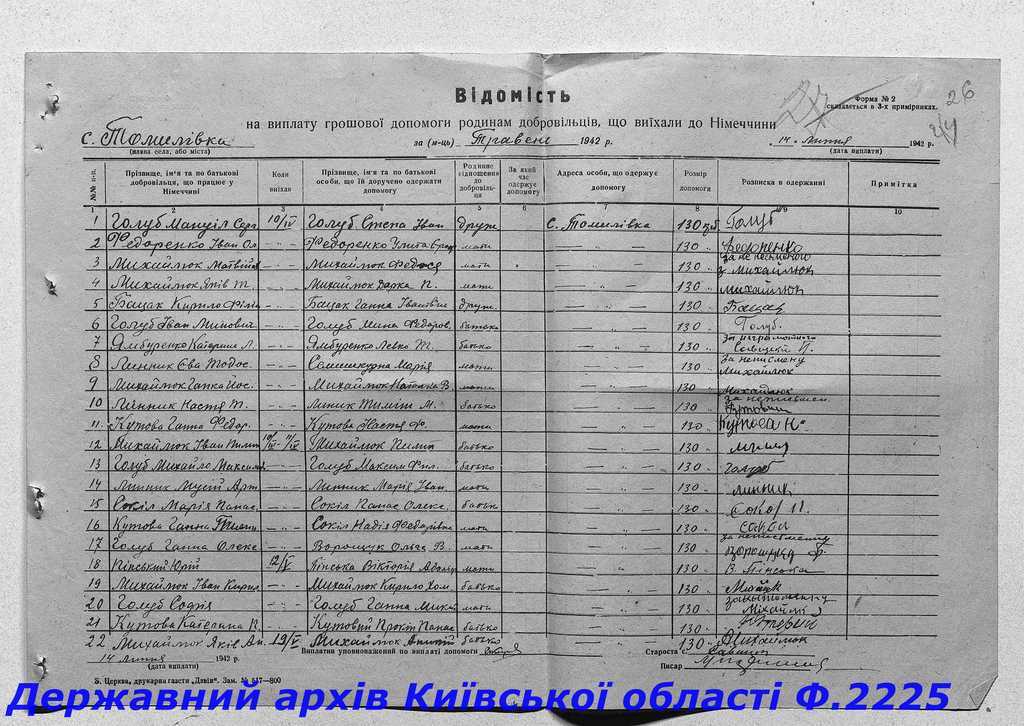 26
24
Форма № 2
складається в 3-х примірниках.
Відомість
на виплату грошової допомоги родинам добровільців, що виїхали до Німеччини
с. Томилівка за (м-ць) Травень 1942 р. 14 Липня 1942 р.
(назва села, або міста) (дата виплати)
№№ п-п. Прізвище, ім'я та по батькові добровільця, що працює у Німеччині Коли виїхав Прізвище, ім'я та по батькові особи, що їй доручено одержати допомогу Родинне відношення до добровільця За який час одержує допомогу Адреса особи, що одержує допомогу Розмір допомоги Розписка в одержанні Примітка
1 2 3 4 5 6 7 8 9 10
1 Голуб Мануіл Серг 10/IV Голуб Степа Іван друж. с. Томилівка 130 руб Голуб
2 Федоренко Іван Ол. — „ — Федоренко Улита мати — „ — 130 „ Федоренко
3 Михайлюк Матвій — „ — Михайлюк Федося мати — „ — 130 „ за неписьмену Михайлюк
4 Михайлюк Яків Т. — „ — Михайлюк Дарка П. мати — „ — 130 „ Михайлюк
5 Бацак Кирило Філім — „ — Бацак Ганна Іванівна друж. — „ — 130 „ Бацак
6 Голуб Іван Минович — „ — Голуб Мина Федоров. батько — „ — 130 „ Голуб.
7 Ямбуренко Катерина Л. — „ — Ямбуренко Левко Т. батько — „ — 130 „
8 Линник Єва Тодос. — „ — Самишкурна Марія мати — „ — 130 „ за неписмену Михайлюк
9 Михайлюк Гапка Йос. — „ — Михайлюк Наталка В. мати — „ — 130 „ Михайлюк
10 Линник Настя Т. — „ — Линик Тиміш М. батько — „ — 130 „
11 Кутова Ганна Федор. — „ — Кутова Настя Ф. мати — „ — 130 „ Кутова Н.
12 Михайлюк Іван Пилип 10/IV Михайлюк Пилип батько — „ — 130 „
13 Голуб Михайло Максим — „ — Голуб Максим Фил. батько — „ — 130 „ Голуб
14 Линник Мусій Арт — „ — Линник Марія Іван. мати — „ — 130 „ Линник
15 Сокіл Марія Панас. — „ — Сокіл Панас Олекс. батько — „ — 130 „ Сокол П.
16 Кутова Ганна — „ — Сокіл Надія Федорівна мати — „ — 130 „
17 Голуб Ганна Олекс — „ — Ворощук Ольга В. мати — „ — 130 „
18 Пінський Юрій 12/V Пінська Вікторія Адам мати — „ — 130 „ В. Пінська
19 Михайлюк Іван Кирил — „ — Михайлюк Кирило Хом. батько — „ — 130 „
20 Голуб Софія — „ — Голуб Ганна Микит мати — „ — 130 „
21 Кутова Катерина П. — „ — Кутовий Прокіп Панас батько — „ — 130 „
22 Михайлюк Яків Ан. 12/V Михайлюк Антон батько 130 „ Михайлюк
14 Липня 1942 р. Виплатив уповноважений по виплаті допомоги Староста
(дата виплати) Писар
Б. Церква, друкарня газети „Дзвін". Зам. № 517—800
Державний архів Київської області Ф.2225